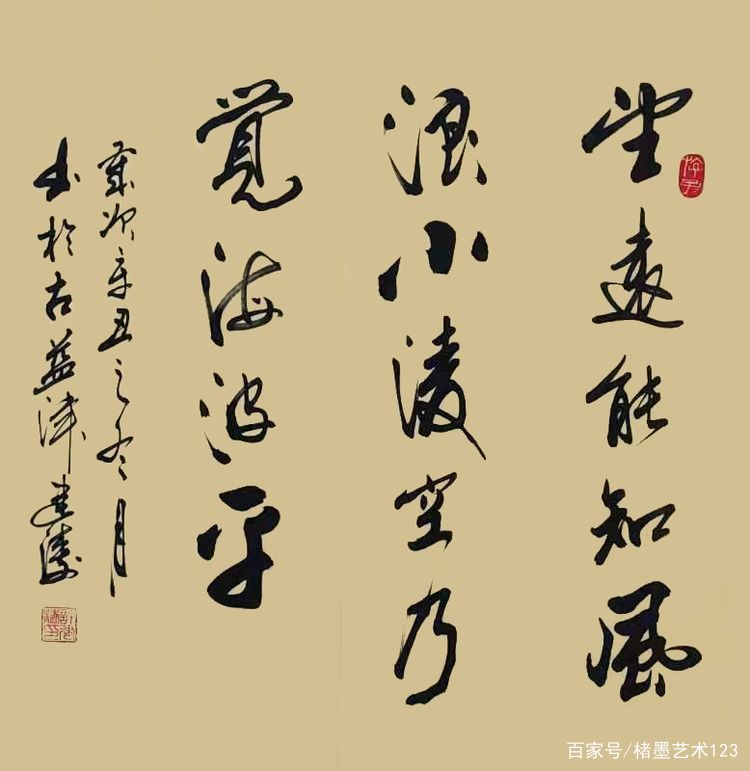 望遠能知風
浪小淩空乃
覺海波平
歲次辛丑之冬月
书於古益津建
百家号/楮墨艺术123